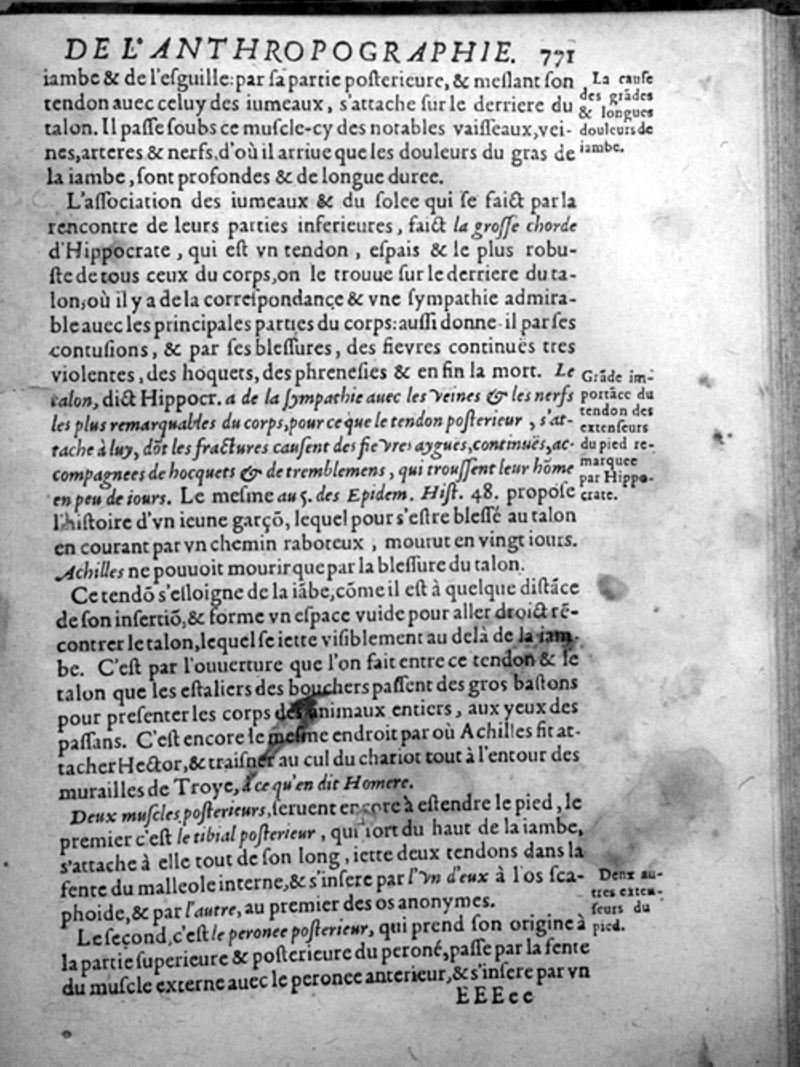 DE L'ANTHROPOGRAPHIE. 771
iambe & de l'esguille: par sa partie posterieure, & meslant son
tendon auec celuy des iumeaux, s'attache sur le derriere du
talon. Il passe soubs ce muscle-cy des notables vaisseaux, vei-
nes, arteres & nerfs, d'où il arriue que les douleurs du gras de
la iambe, sont profondes & de longue duree.
La cause
des grādes
& longues
douleurs de
iambe.
L'association des iumeaux & du solee qui se faict par la
rencontre de leurs parties inferieures, faict la grosse chorde
d'Hippocrate, qui est vn tendon, espais & le plus robu-
ste de tous ceux du corps, on le trouue sur le derriere du ta-
lon, où il y a de la correspondançe & vne sympathie admira-
ble auec les principales parties du corps: aussi donne-il par ses
contusions, & par ses blessures, des fievres continuës tres
violentes, des hoquets, des phrenesies & en fin la mort. Le
talon, dict Hippocr. a de la sympathie auec les veines & les nerfs
les plus remarquables du corps, pour ce que le tendon posterieur, s'at-
tache à luy, dōt les fractures causent des fievres aygues, continuës, ac-
compagnees de hocquets & de tremblemens, qui troussent leur hōme
en peu de iours. Le mesme au 5. des Epidem. Hist. 48. propose
l'histoire d'vn ieune garçō, lequel pour s'estre blessé au talon
en courant par vn chemin raboteux, mourut en vingt iours.
Achilles ne pouuoit mourir que par la blessure du talon.
Grāde im-
portāce du
tendon des
extenseurs
du pied re-
marquee
par Hippo-
crate.
Ce tendō s'esloigne de la iābe, cōme il est à quelque distāce
de son insertiō, & forme vn espace vuide pour aller droict rē-
contrer le talon, lequel se iette visiblement au delà de la iam-
be. C'est par l'ouuerture que l'on fait entre ce tendon & le
talon que les estaliers des bouchers passent des gros bastons
pour presenter les corps des animaux entiers, aux yeux des
passans. C'est encore le mesme endroit par où Achilles fit at-
tacher Hector, & traisner au cul du chariot tout à l'entour des
murailles de Troye, à ce qu'en dit Homere.
Deux muscles posterieurs, seruent encore à estendre le pied, le
premier c'est le tibial posterieur, qui sort du haut de la iambe,
s'attache à elle tout de son long, iette deux tendons dans la
fente du malleole interne, & s'insere par l'vn d'eux à l'os sca-
phoide, & par l'autre, au premier des os anonymes.
Deux au-
tres exten-
seurs du
pied.
Le second, c'est le peronee posterieur, qui prend son origine à
la partie superieure & posterieure du peroné, passe par la fente
du muscle externe auec le peronee anterieur, & s'insere par vn
EEEee